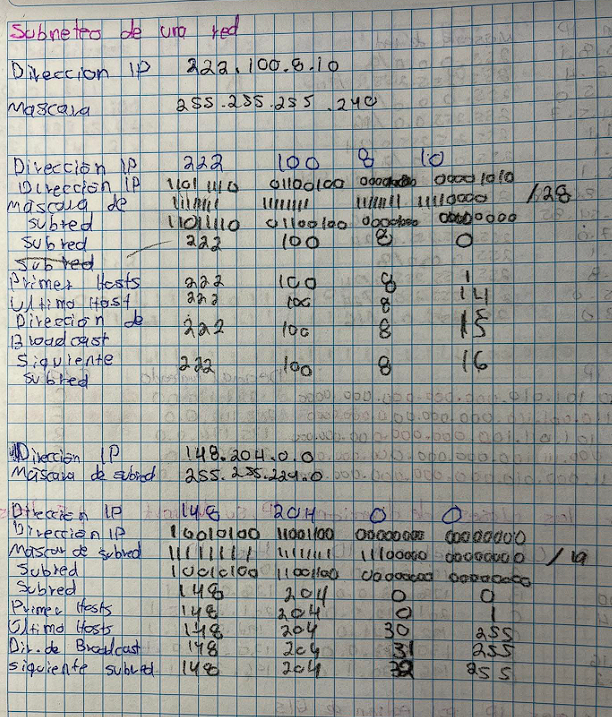 Subneteo de una red
Direccion IP 222.100.8.10
Mascara 255.255.255.240
Dirección IP 222 100 8 10
Dirección IP 11011110 01100100 00001000 00001010
Mascara de 11111111 11111111 11111111 11110000 /28
subred 11011110 01100100 00001000 00000000
subred 222 100 8 0
Subred
Primer Hosts 222 100 8 1
Ultimo Host 222 100 8 14
Dirección de
Broadcast 222 100 8 15
Siguiente
subred 222 100 8 16
Dirección IP 148.204.0.0
Mascara de subred 255.255.224.0
Dirección IP 148 204 0 0
Dirección IP 10010100 11001100 00000000 00000000
Mascar de subred 11111111 11111111 11100000 00000000 /19
Subred 10010100 11001100 00000000 00000000
Subred 148 204 0 0
Primer Hosts 148 204 0 1
Ultimo Hosts 148 204 30 255
Dir. de Broadcast 148 204 31 255
siguiente subred 148 204 32 255